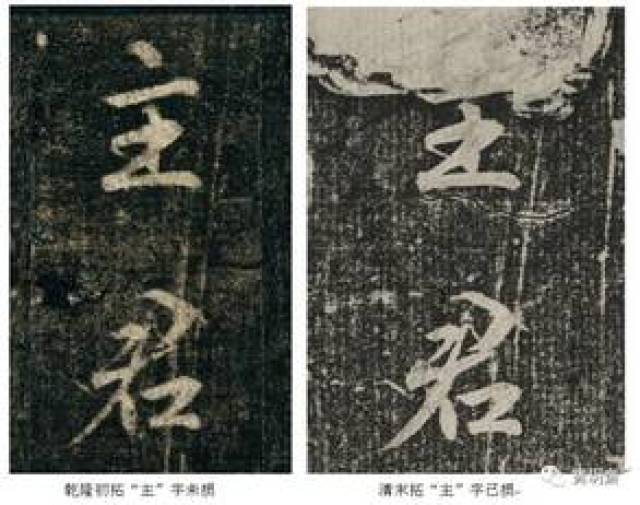 主
君
主
君
乾隆初拓“主”字未损
清末拓“主”字已损。